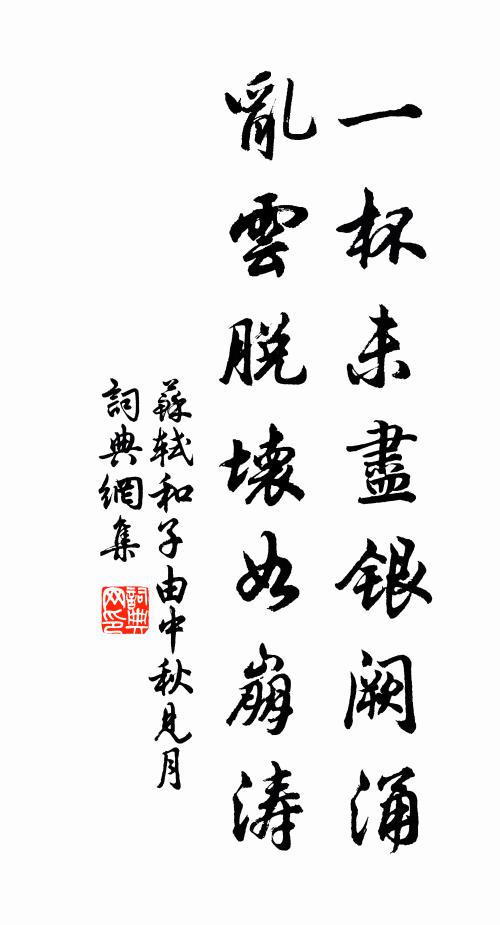 一杯未盡銀闕涌
亂雲脫壞如崩濤
蘇軾和子由中秋見月
詞典網集
詞典网印